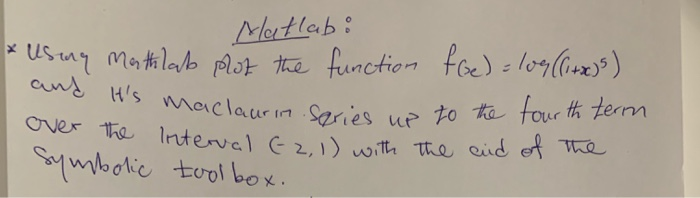 Matlab:
* Using Mathlab plot the function f(x) = log((1+x)⁵)
and It's Maclaurin Series up to the fourth term
over the Interval (-2,1) with the aid of the
Symbolic tool box.